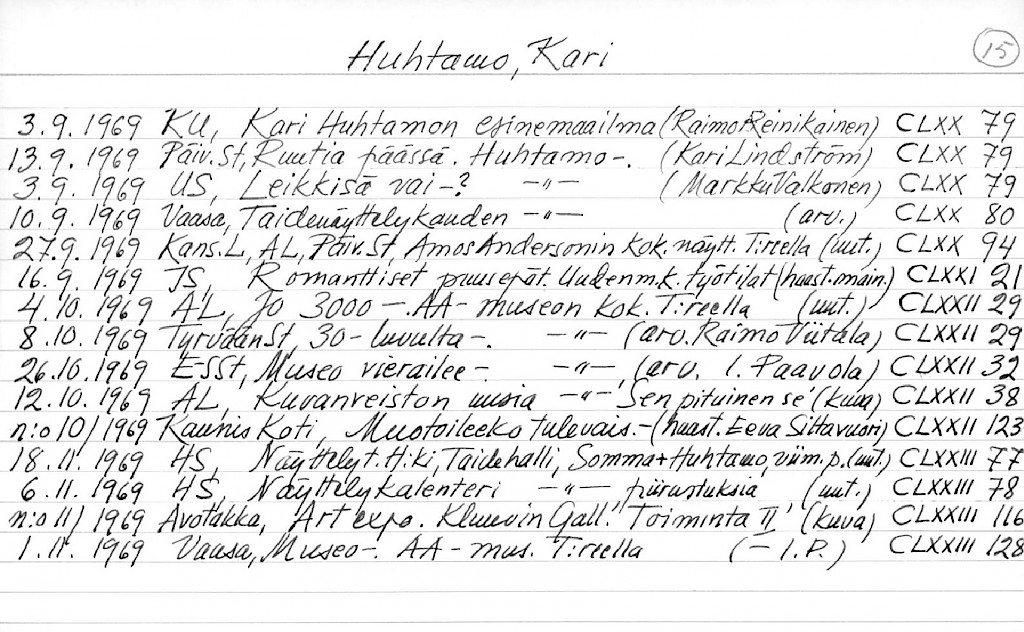 Huhtamo, Kari
15
3.9.1969 KU, Kari Huhtamon esinemaailma (Raimo Reinikainen) CLXX 79
13.9.1969 Päiv.St, Ruutia päässä. Huhtamo-. (Kari Lindström) CLXX 79
3.9.1969 US, Leikkisä vai-? -"- (Markku Valkonen) CLXX 79
10.9.1969 Vaasa, Taidenäyttelykauden -"- (arv.) CLXX 80
27.9.1969 Kans.L, AL, Päiv.St, Amos Andersonin kok. näytt. T:reella (uut.) CLXX 94
16.9.1969 JS, Romanttiset puusepät. Uudenm.k. työtilat (haast.main.) CLXXI 21
4.10.1969 AL, Jo 3000 -. AA-museon kok. T:reella (uut.) CLXXII 29
8.10.1969 TyrväänSt, 30-luvulta-. -"- (arv. Raimo Viitala) CLXXII 29
26.10.1969 ESSt, Museo vierailee-. -"-, (arv. I. Paavola) CLXXII 32
12.10.1969 AL, Kuvanveiston uusia -"- 'Sen pituinen se' (kuva) CLXXII 38
n:o 10/1969 Kaunis Koti, Muotoileeko tulevais.- (haast. Eeva Siltavuori) CLXXII 123
18.11.1969 HS, Näyttelyt. H:ki, Taidehalli, Somma+Huhtamo, viim.p. (uut.) CLXXIII 77
6.11.1969 HS, Näyttelykalenteri -"- piirustuksia (uut.) CLXXIII 78
n:o 11/1969 Avotakka, 'Art expo. Kluuvin Gall.' 'Toiminta II' (kuva) CLXXIII 116
1.11.1969 Vaasa, Museo-. AA-mus. T:reella (-I.P.) CLXXIII 128